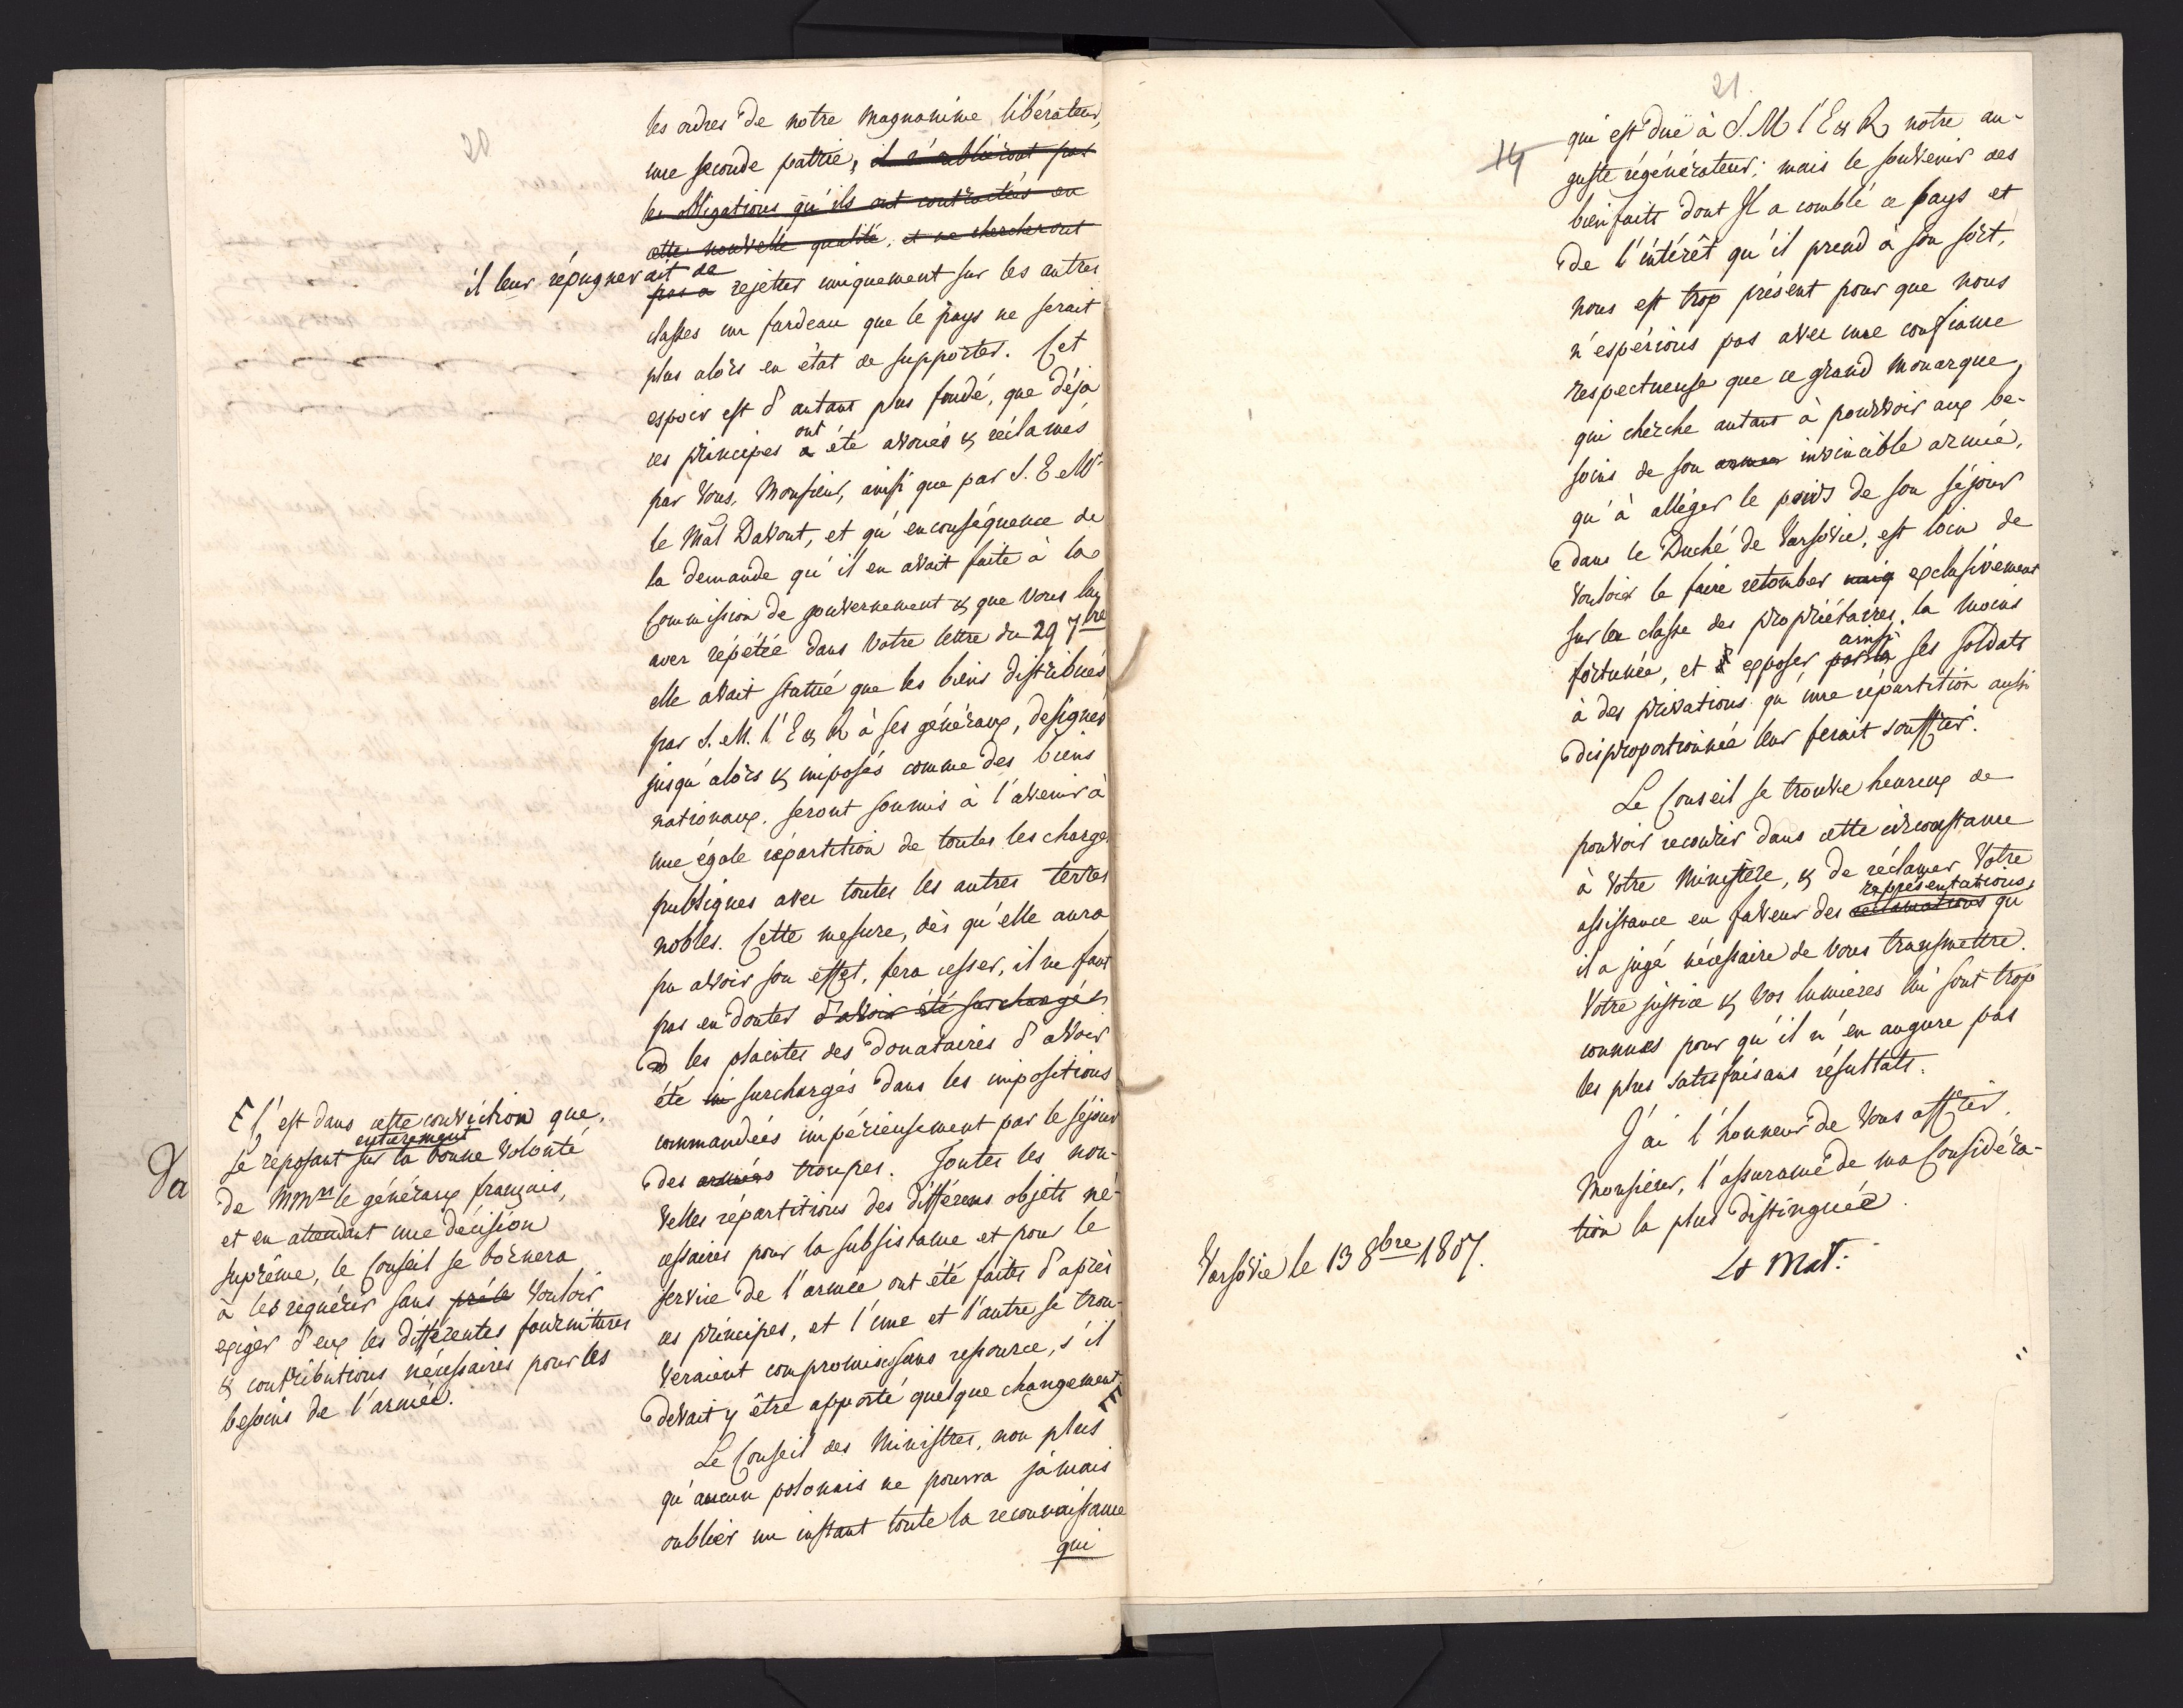 20
les ordres de notre magnanime libérateur,
une seconde patrie, il n'oublieront pas
les obligations qu'ils ont contractées en
cette nouvelle qualité, et ne chercheront
il leur répugnerait de
pas a rejetter uniquement sur les autres
classes un fardeau que le pays ne serait
plus alors en état de supporter. Cet
espoir est d'autant plus fondé, que déja
ont
ces principes a été avoués & réclamés
par Vous, Monsieur, ainsi que par S. E. Mr
le Mal Davout, et qu'en conséquence de
la demande qu'il en avait faite à la
Commission de gouvernement & que Vous lui
avez répétée dans Votre lettre du 29 7bre
elle avait statué que les biens distribués
par S. M. l'E & R à ses généraux, désignés
jusqu'alors & imposés comme des biens
nationaux, seront soumis à l'avenir à
une égale répartition de toutes les charges
publiques avec toutes les autres terres
nobles. Cette mesure, dès qu'elle aura
pu avoir son effet, fera cesser, il ne faut
pas en douter d'avoir été surchargés
les plaintes des donataires d'avoir
été surchargés dans les impositions
commandées impérieusement par le séjour
des armées troupes. Toutes les nou-
velles répartitions des différens objets né-
cessaires pour la subsistance et pour le
service de l'armée ont été faites d'après
ces principes, et l'une et l'autre se trou-
veraient compromises sans ressource, s'il
devait y être apporté quelque changement.
Le Conseil des Ministres, non plus
qu'aucun polonais ne pourra jamais
oublier un instant toute la reconnaissance
qui
C'est dans cette conviction que,
entièrement
se reposant sur la bonne volonté
de Mmrs le généraux français,
et en attendant une décision
suprême, le Conseil se bornera
à les requérir sans vouloir
exiger d'eux les différentes fournitures
& contributions nécessaires pour les
besoins de l'armée.
Va
21.
14
qui est due à S. M l'E & R notre au-
guste régénérateur; mais le souvenir des
bienfaits dont Il a comblé ce pays et
de l'intérêt qu'il prend à son sort,
nous est trop présent pour que nous
n'espérions pas avec une confiance
respectueuse que ce grand Monarque,
qui cherche autant à pourvoir aux be-
soins de son armée invincible armée,
qu'à alléger le poids de son séjour
dans le Duché de Varsovie, est loin de
vouloir le faire retomber uniq exclusivement
sur la classe des propriétaires, la moins
ainsi
fortunée, et d'exposer par là ses soldats
à des privations qu'une répartition aussi
disproportionnée leur ferait souffrir.
Le Conseil se trouve heureux de
pouvoir recourir dans cette circonstance
à Votre Ministère, & de réclamer Votre
représentations,
assistance en faveur des réclamations qu
il a jugé nécessaire de Vous transmettre.
Votre justice & Vos lumières lui sont trop
connues pour qu'il n'en augure pas
les plus satisfaisans résultats.
J'ai l'honneur de Vous offrir,
Monsieur, l'assurance de ma Considéra-
tion la plus distinguée.
Varsovie le 13 8bre 1807.